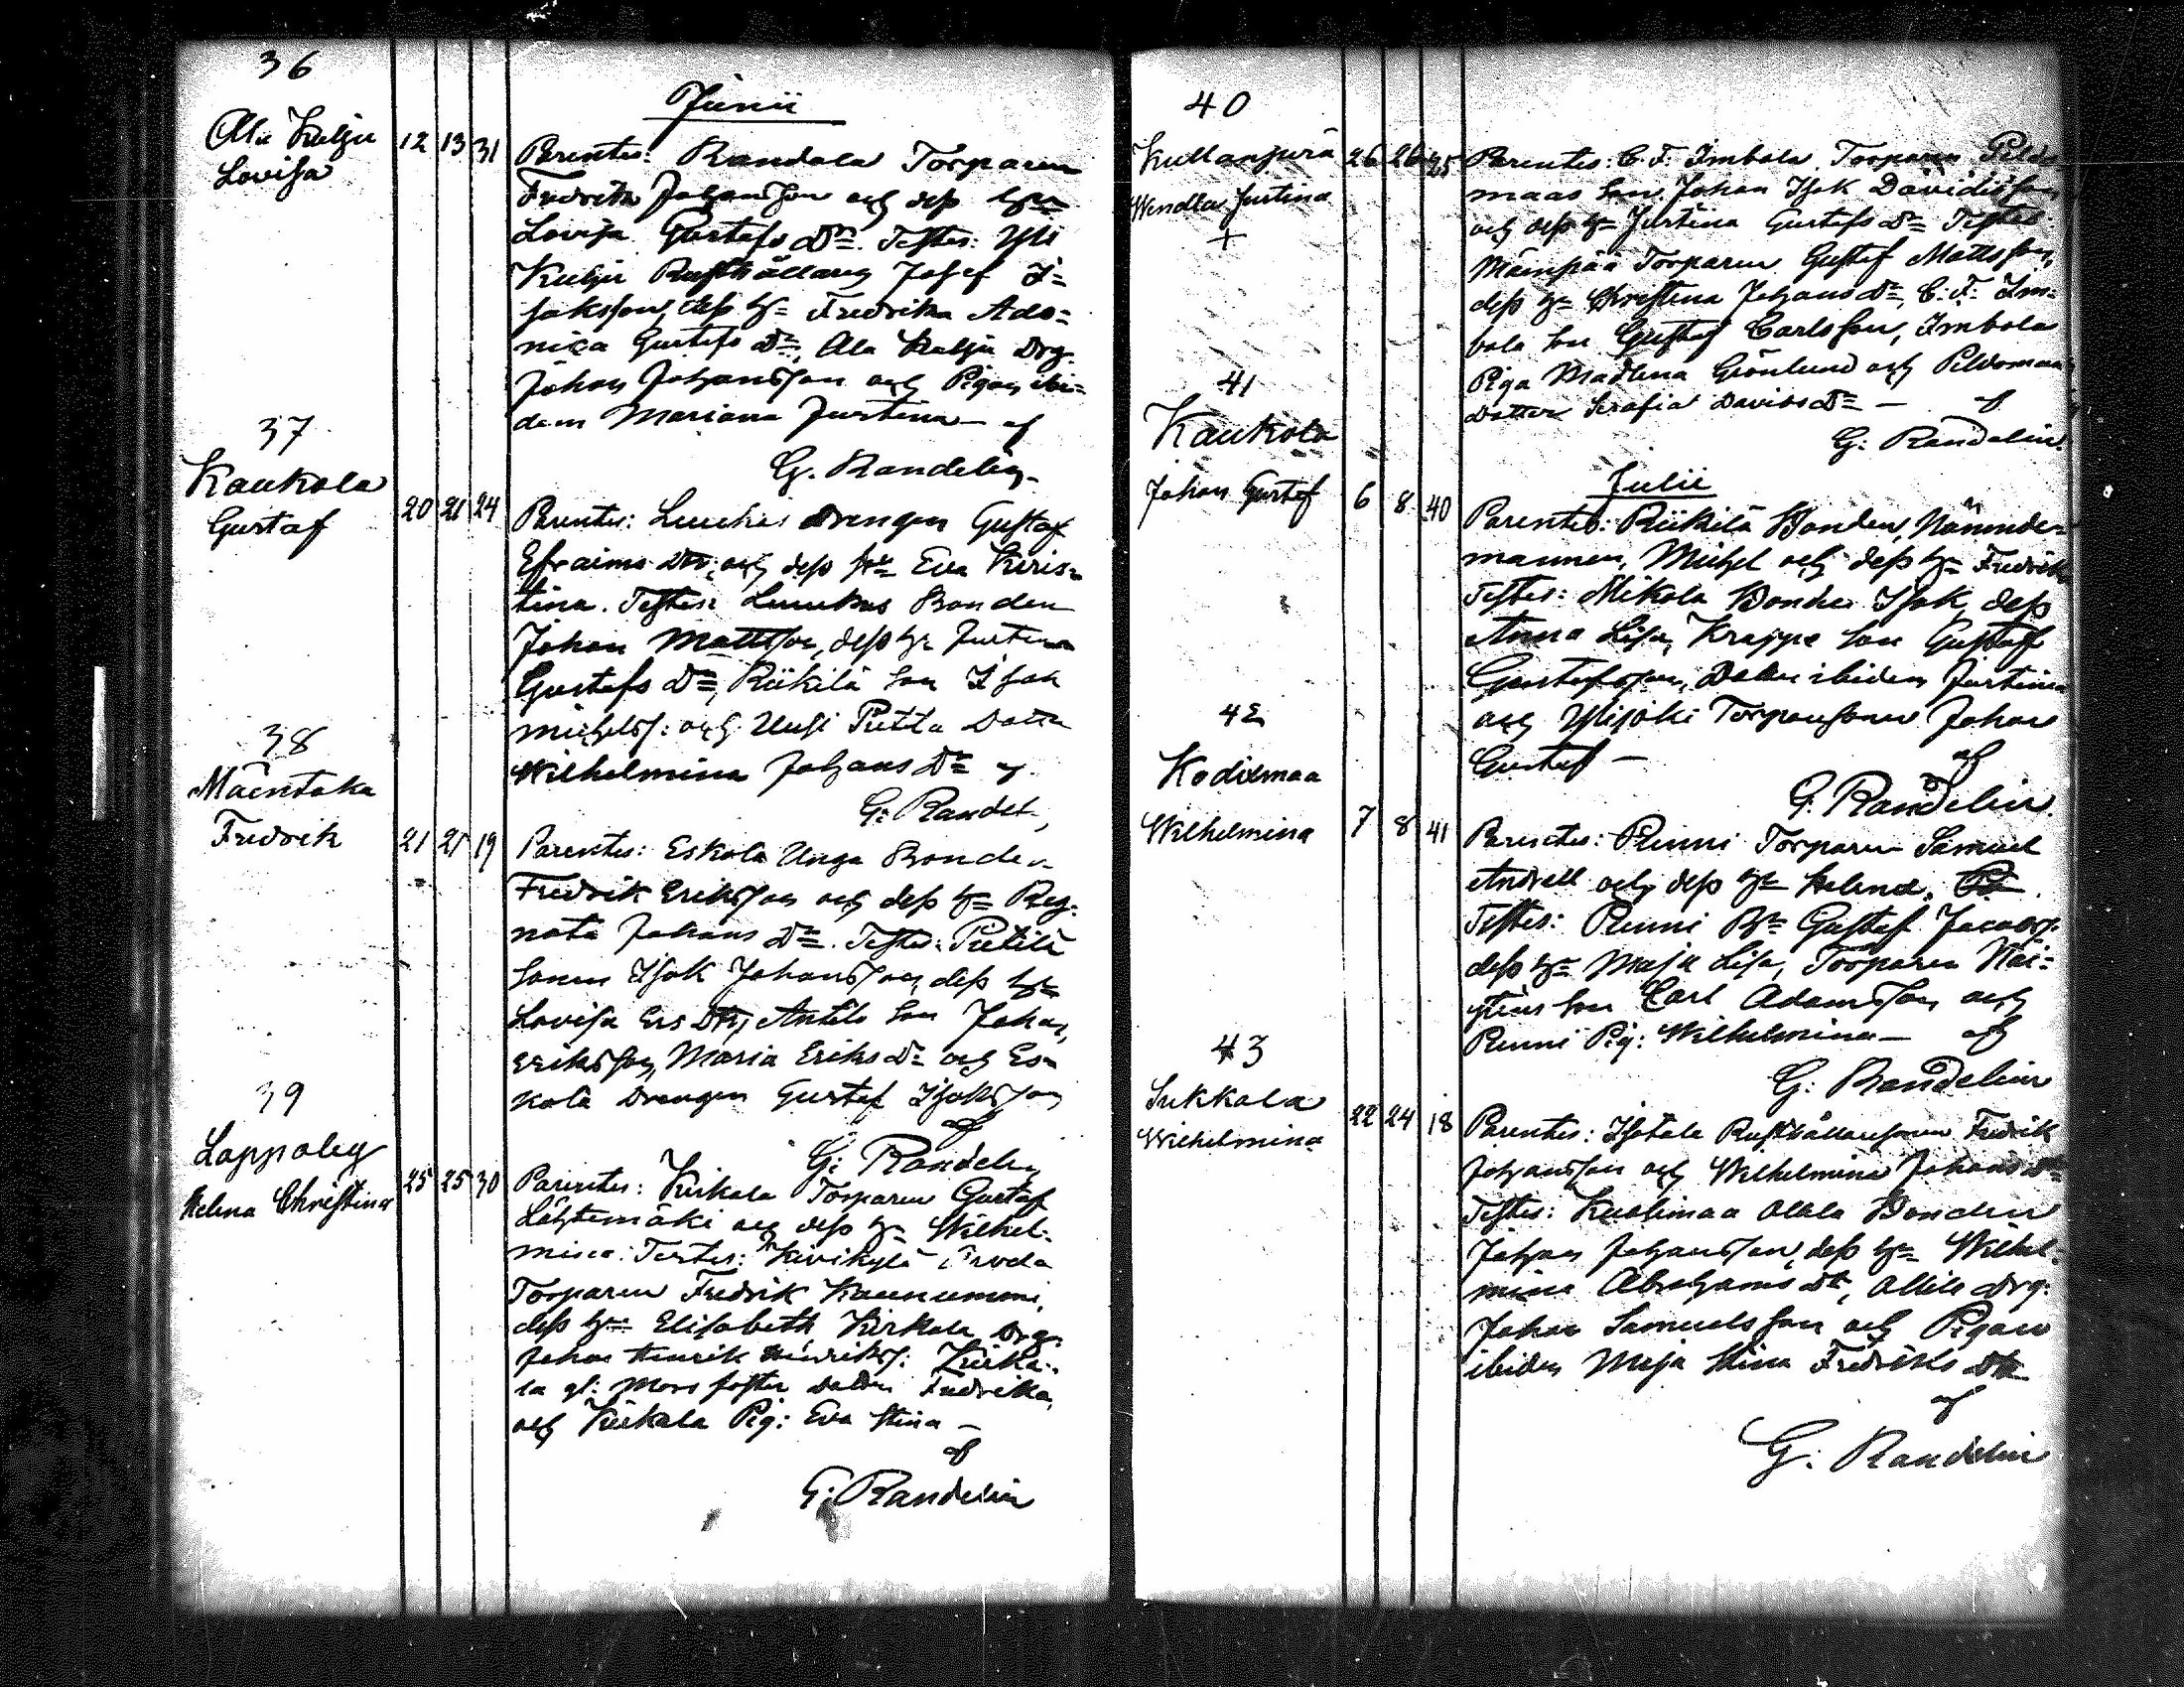 36
Junii
Ala Kulju
Lovisa
12 13 31
Parentes: Randala Torparen
Fredrik Johansson och dess h:u
Lovisa Gustafs D:r. Testes: Yli
Kulju Rusthållaren Josef I=
saksson, dess h:u Fredrika Ado=
niça Gustafs D:r, Ala Kulju Drg.
Johan Johansson och Pigan ibi=
dem Mariana Justina – af
G. Randelin
37
Kaukola
Gustaf
20 21 24
Parentes: Drengen Gustaf
Efraims och dess h:u Eva Kris=
tina. Testes: Bonden
Johan Mattsson, dess h:u Justina
Gustafs D:r, Riikilä Son Isak
Michelss: och Uusi Dotter
Wilhelmina Johans D:r af
G: Randel.
38
Mäentaka
Fredrik
21 21 19
Parentes: Eskola Unga Bonden
Fredrik Eriksson och dess h:u Reg=
nata Johans D:r. Testes:
Sonen Isak Johansson, dess h:u
Lovisa Ers Dtr, Anttila Son Johan
Eriksson, Maria Eriks D:r och Es=
kola Drengen Gustaf Isaksson
af
G: Randelin
39
Loppoley
Helena Christina
25 25 30
Parentes: Kirkola Torparen Gustaf
Lähtemäki och dess h:u Wilhel=
mina. Testes: Kivikylä
Torparen Fredrik Kaunummi,
dess h:u Elisabeth, Kirkola Drg.
Johan Henrik Henrikss: Kirko=
la gl: Mors foster Dotter Fredrika,
och Kirkola Pig: Eva Stina –
af
G: Randelin
40
Kullanperä
Wendla Justina
+
26 26 25
Parentes: C. F. Imbola Torparen Pildo
maas Son Johan Isak Davidsson
och dess h:u Justina Gustafs D:r Testes:
Mämpää Torparen Gustaf Mattsson,
dess h:u Christina Johans D:r, C. F. Im=
bola Son Gustaf Carlsson, Imbola
Piga Madlena Grönlund och Pildomaa
Dotter Serafia Davids D:r – af
G: Randelin
Julii
41
Kaukola
Johan Gustaf
6 8 40
Parentes: Riikilä Bonden, Nämnde=
mannen, Michel och dess h:u Fredrika
Testes: Mikola Bonden Isak, dess
Anna Lisa, Krappe Son Gustaf
Gustafsson, ibidem Justina
och Ylijoki Torparsonen Johan
Gustaf –
af
G. Randelin.
42
Kodixmaa
Wilhelmina
7 8 41
Parentes: Punni Torparen Samuel
Andrell och dess h:u Helena.
Testes: Punni B:n Gustaf Jacobss.
dess h:u Maja Lisa, Torparen Näi=
Son Carl Adamsson och
Punni Pig: Wilhelmina – af
G: Randelin
43
Sukkala
Wilhelmina
22 24 18
Parentes: Isotalo Rusthållaresonen Fredrik
Johansson och Wilhelmina Johans D:r
Testes: Kuolimaa Bonden
Johan Johansson, dess h:u Wilhel=
mina Abrahams Dtr, Drg.
Johan Samuelsson och Pigan
ibidem Maja Stina Fredriks Dtr
af
G: Randelin